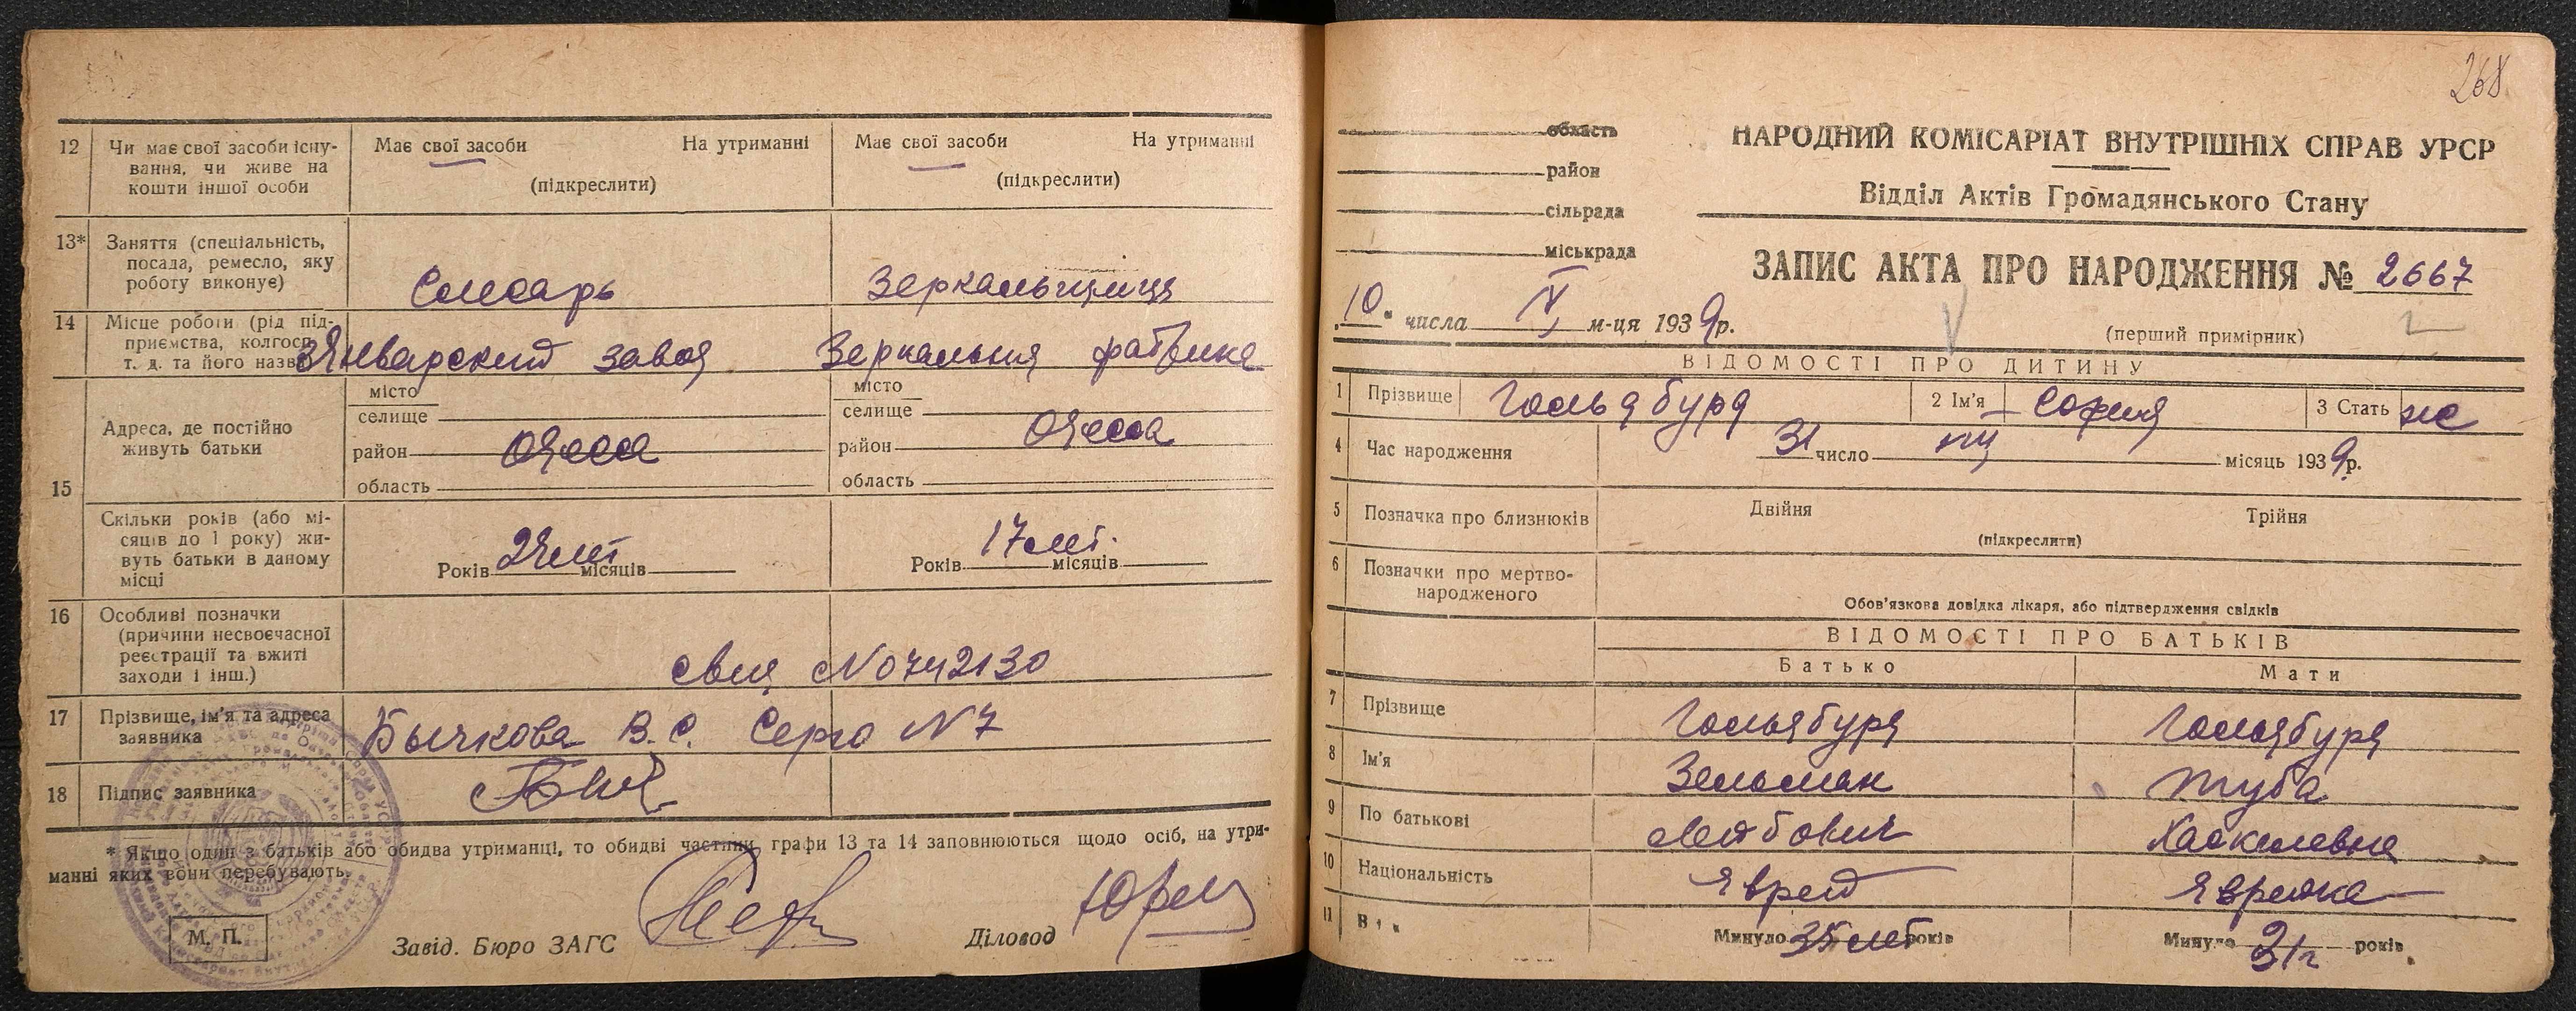 12 Чи має свої засоби існу-
вання, чи живе на
кошти іншої особи
Має свої засоби На утриманні
(підкреслити)
Має свої засоби На утриманні
(підкреслити)
13* Заняття (спеціальність,
посада, ремесло, яку
роботу виконує)
Слесарь
Зеркальщица
14 Місце роботи (рід під-
приємства, колгосп
т. д. та його назва
Январский завод
Зеркальная фабрика
15 Адреса, де постійно
живуть батьки
місто
селище
район Одесса
область
місто
селище
район Одесса
область
Скільки років (або мі-
сяців до 1 року) жи-
вуть батьки в даному
місці
Років місяців
Років 17 лет. місяців
16 Особливі позначки
(причини несвоєчасної
реєстрації та вжиті
заходи і інш.)
№ 0742130
17 Прізвище, ім'я та адреса
заявника
Бычкова В. С. Серго № 7
18 Підпис заявника
* Якщо один з батьків або обидва утриманці, то обидві частини графи 13 та 14 заповнюються щодо осіб, на утри-
манні яких вони перебувають.
М. П.
Завід. Бюро ЗАГС Діловод
268
область
район
сільрада
міськрада
НАРОДНИЙ КОМІСАРІАТ ВНУТРІШНІХ СПРАВ УРСР
Відділ Актів Громадянського Стану
ЗАПИС АКТА ПРО НАРОДЖЕННЯ № 2667
„10" числа м-ця 1939р.
(перший примірник)
ВІДОМОСТІ ПРО ДИТИНУ
1 Прізвище Гольдбурд 2 Ім'я София 3 Стать ж
4 Час народження 31 число місяць 1939р.
5 Позначка про близнюків Двійня Трійня
(підкреслити)
6 Позначки про мертво-
народженого
Обов'язкова довідка лікаря, або підтвердження свідків
ВІДОМОСТІ ПРО БАТЬКІВ
Батько Мати
7 Прізвище Гольдбурд Гольдбурд
8 Ім'я Зельман Туба
9 По батькові Лейбович Хаскелевна
10 Національність Еврей Еврейка
11 Вік Минуло 35 лет років Минуло 31 г років